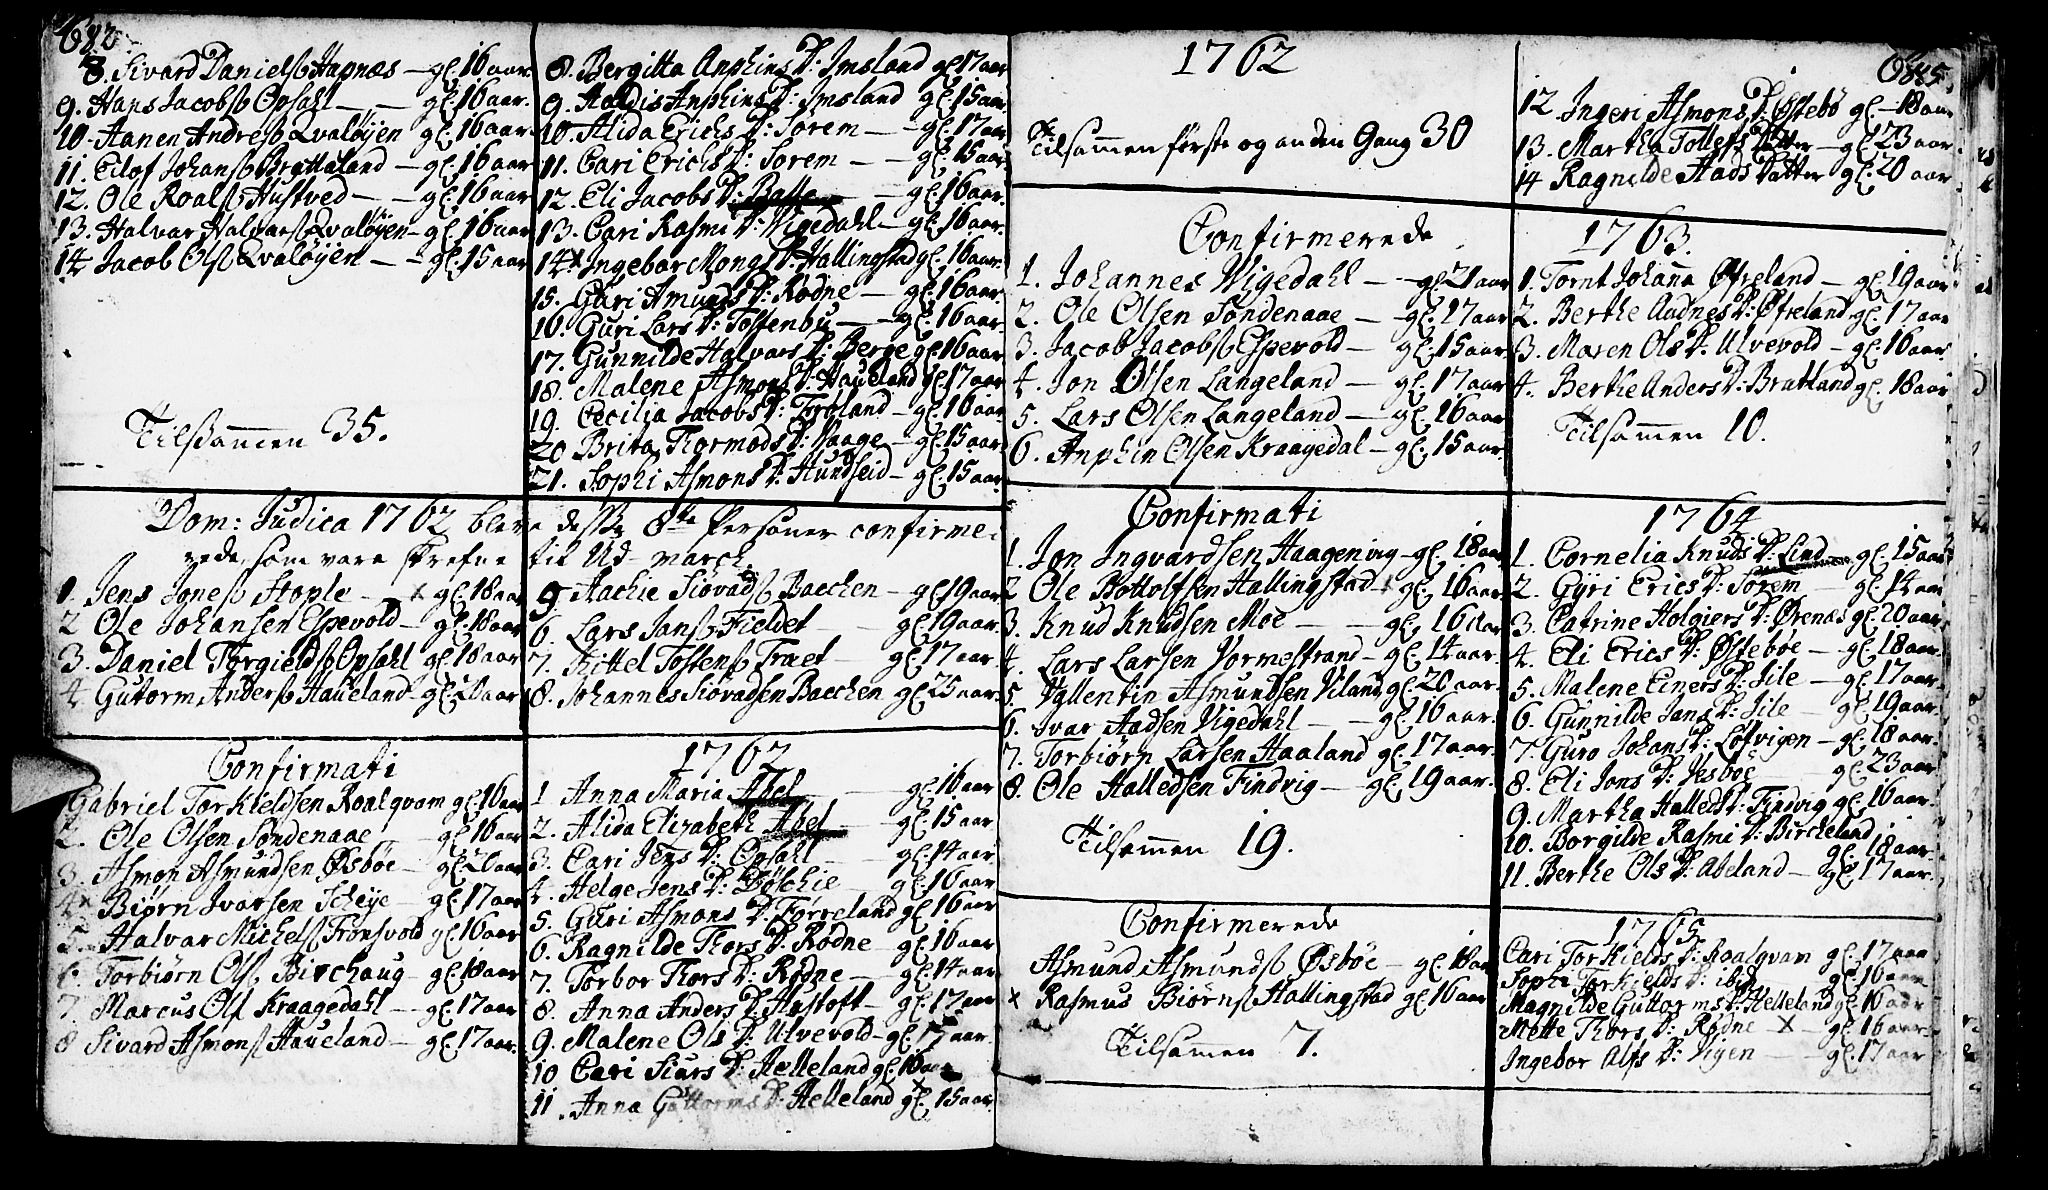 682
8. Sivard Danielsß Hapnæs — gl. 16 aar.
9. Hans Jacobsß Opsahl — — gl. 16 aar.
10. Aanen Andresß Qvaløyen gl. 16 aar.
11. Elof Johansß Brattaland — gl. 16 aar
12. Ole Roalsß Hustved — — gl. 16 aar
13. Halvar Halvarsß Qvaløyen — gl. 16 aar
14 Jacob Olsß Qvaløyen — — gl. 15 aar
Tilsammen 35.
8. Bergitta Anphins D: Imsland gl 17 aar
9. Aaldis Anphins D: Imsland gl. 15 aar.
10. Alida Erichs D: Sørem — — gl. 17 aar
11. Cari Erichs D: Sørem — — gl. 15 aar
12. Eli Jacobs D: — gl. 16 aar.
13. Cari Rasmi D: Wigedahl — gl. 16 aar.
14 x Ingebor Mons D: Hallingstad gl. 16 aar.
15. Guri Amunds D: Rødne — gl. 16 aar
16. Guri Lars D: Tostenbu — — gl. 16 aar.
17. Gunnilde Halvars D: Berge gl. 16 aar
18. Malene Asmons D: Haueland gl. 17 aar
19. Cecilia Jacobs D: — gl. 16 aar
20 Brita Thormods D: Vaage — gl. 15 aar
21. Sophi Asmons D: Hundseid — gl. 15 aar
Dom: Judica 1762 bleve desße 8te Personer confirme-
rede, som vare skrefne til Ud-march.
1. Jens Jonesß Stople — x gl. 18 aar
2 Ole Johansen Espevold — gl. 18 aar
3. Daniel Torgieldsß Opsahl gl. 18 aar
4. Gutorm Andersß Haueland — gl. 20 aar
5 Aachie Siovadsß Baechen — gl 19 aar
6. Lars Jansß Fieldet — gl. 19 aar.
7. Kittel Tostensß Traet — gl. 17 aar.
8. Johannes Siovadsen Baechen gl. 25 aar.
Confirmati 1762
Gabriel Torkieldsen Roalqvam gl. 16 aar
2. Ole Olsen Søndenaae — gl. 16 aar
3. Asmon Asmundsen Øsbøe — gl. 20 aar
4 x Biørn Ivarsen Scheye — gl. 17 aar
5. Halvar Michelsß Fronsvold gl. 16 aar
6. Torbiørn Olsß Birchaug — gl. 18 aar
7. Marcus Olsß Kraagedahl — gl. 17 aar
8 Sivard Asmonsß Haueland — gl. 17 aar.
1 Anna Maria Abel — gl. 16 aar
2. Alida Elizabeth Abel — gl. 15 aar
3. Cari Jens D: Opsahl — gl. 14 aar
4. Helge Jens D: Døschie — gl. 16 aar
5. Guri Asmons D: Førreland gl. 16 aar
6. Ragnilde Thors D: Rødne — gl. 16 aar
7. Torbor Thors D: Rødne — gl. 14 aar
8. Anna Anders D: Hastoft — gl. 17 aar
9. Malene Ols D: Ulvevold — gl. 17 aar.
10 Cari Siurs D: Helleland gl. 16 aar
11. Anna Guttorms D: Helleland gl. 15 aar.
1762
Tilsammen første og anden Gang 30
685.
12. Ingeri Asmons D: Østebø gl. — 18 aar
13. Martha Tollefs Datter — gl. 23 aar
14 Ragnilde Aads Datter gl. 20 aar
Confirmerede 1763.
1. Johannes Wigedahl — — gl. 21 aar
2. Ole Olsen Søndenaae — — gl. 17 aar
3. Jacob Jacobsß Espevold — gl. 15 aar
4. Jon Olsen Langeland — gl. 17 aar
5. Lars Olsen Langeland — gl. 16 aar
6. Anphin Olsen Kraagedal — gl. 15 aar.
1. Tornt Johana Øfreland — gl. 19 aar
2. Berthe Audnes D: Øfreland gl. 17 aar
3. Maren Ols D: Ulvevold — gl. 16 aar.
4. Berthe Anders D: Bratland gl. 18 aar
Tilsammen 10.
Confirmati 1764.
1. Jon Ingvardsen Haagenvig — gl. 18 aar
2 Ole Bottolfsen Hallingstad gl. 16 aar.
3. Knud Knudsen Moe — — gl. 16 aar
4. Lars Larsen Vormestrand — gl. 14 aar.
5. Vallentin Asmundsen Viland gl. 20 aar.
6. Ivar Aadsen Vigedahl — — gl. 16 aar.
7. Torbiørn Larsen Haaland gl. 17 aar.
8. Ole Halledsen Findvig — gl. 19 aar.
Tilsammen 19.
1. Cornelia Knuds D: Lind gl. 15 aar
2. Gyri Erics D: Sørem — gl. 14 aar
3. Catrine Holgiers D: Ørenæs gl. 20 aar
4. Eli Erics D: Østebøe — gl. 18 aar.
5. Malene Einers D: Sile — gl. 17 aar
6. Gunnilde Jans D: Sile — gl. 19 aar.
7. Guro Johans D: Løfvigen — gl. 18 aar.
8. Eli Jons D: Jesbøe — gl. 23 aar
9. Martha Halleds D: Findvig gl. 16 aar.
10. Borgilde Rasmi D: Bircheland gl. 18 aar.
11. Berthe Ols D: Abeland — gl. 17 aar.
Confirmerede 1765
Asmund Asmundsß Øsbøe — gl. 18 aar
x Rasmus Biørnsß Hallingstad gl. 16 aar
Tilsammen 7.
Cari Torkields D: Roalqvam gl. 17 aar
Sophi Torkields D: ibid. gl. 16 aar
Magnilde Guttorms D: Helleland gl. 16 aar
Mette Thors D: Rødne x — gl. 16 aar
Ingebor Alfs D: Vigen — gl. 17 aar